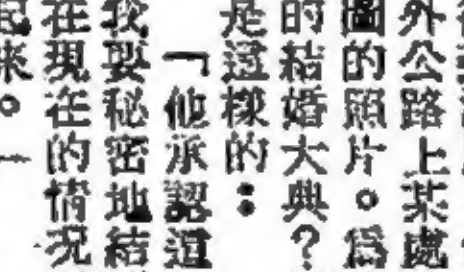 外公路上某處
圖的照片。爲
的結婚大典？
是這樣的：
「他承認這
我要秘密地結
在現在的情况
起來。